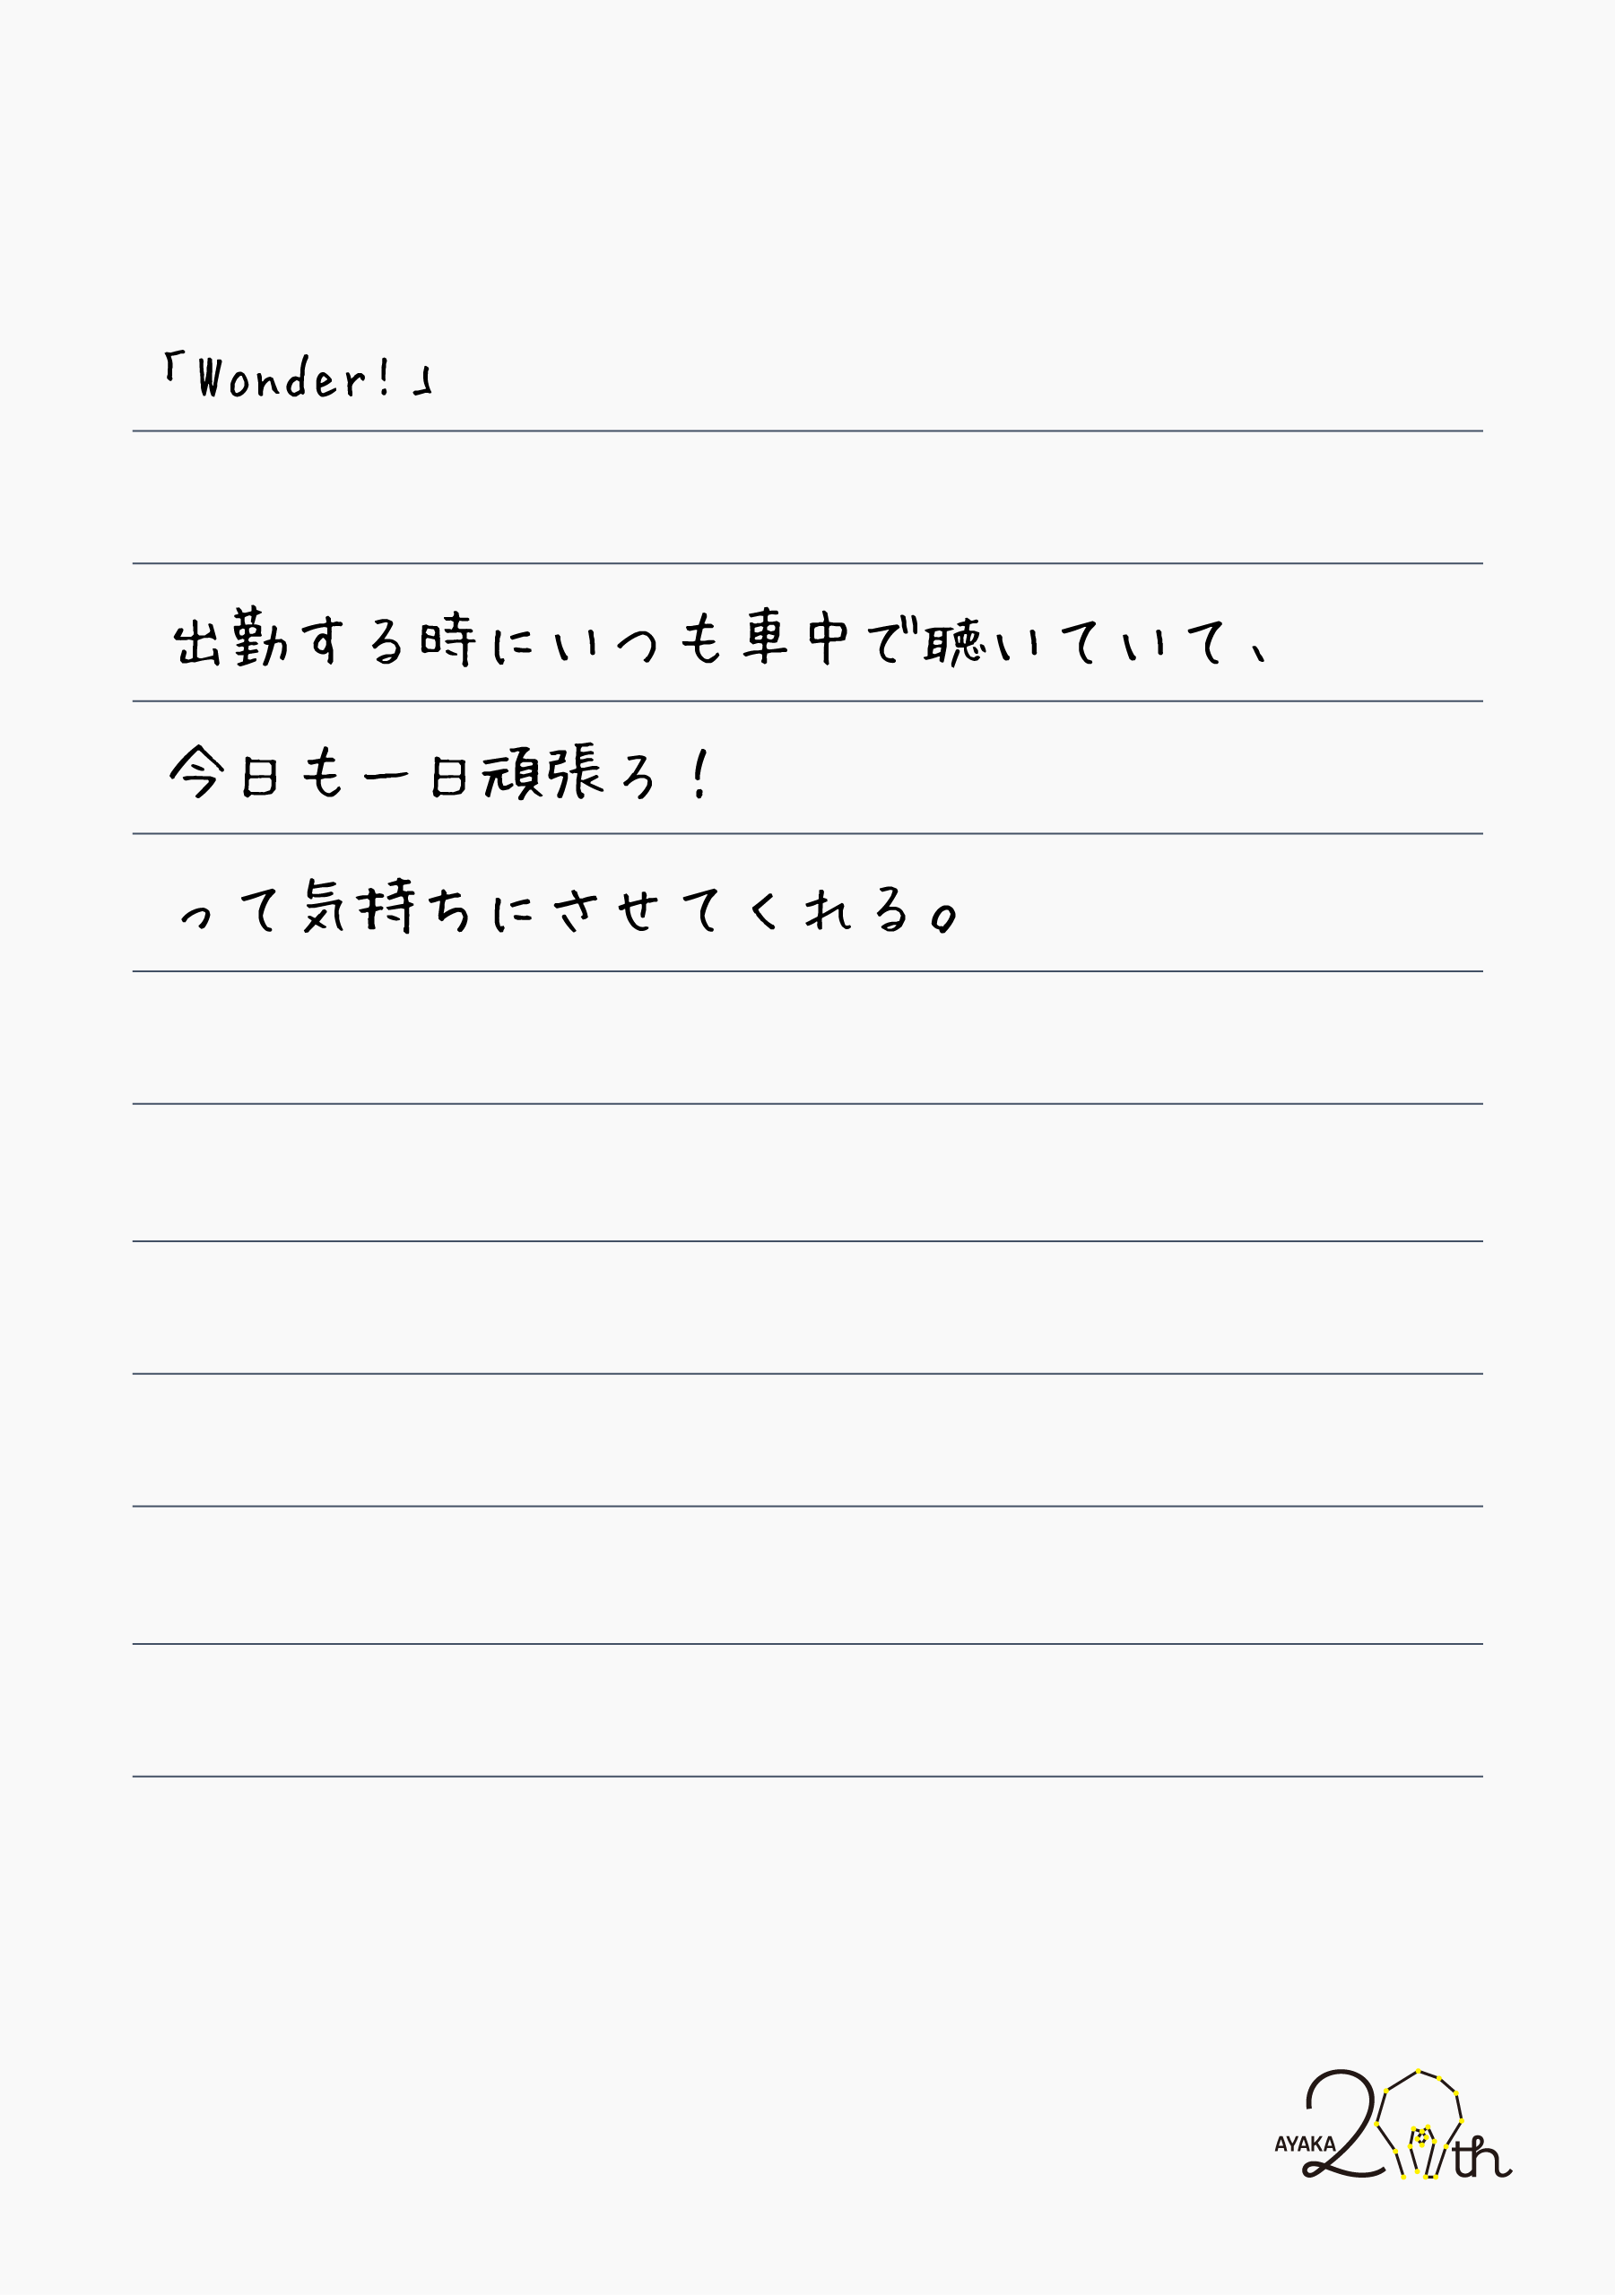 「Wonder!」
出勤する時にいつも車中で聴いていて、
今日も一日頑張ろ！
って気持ちにさせてくれる。
AYAKA 20th